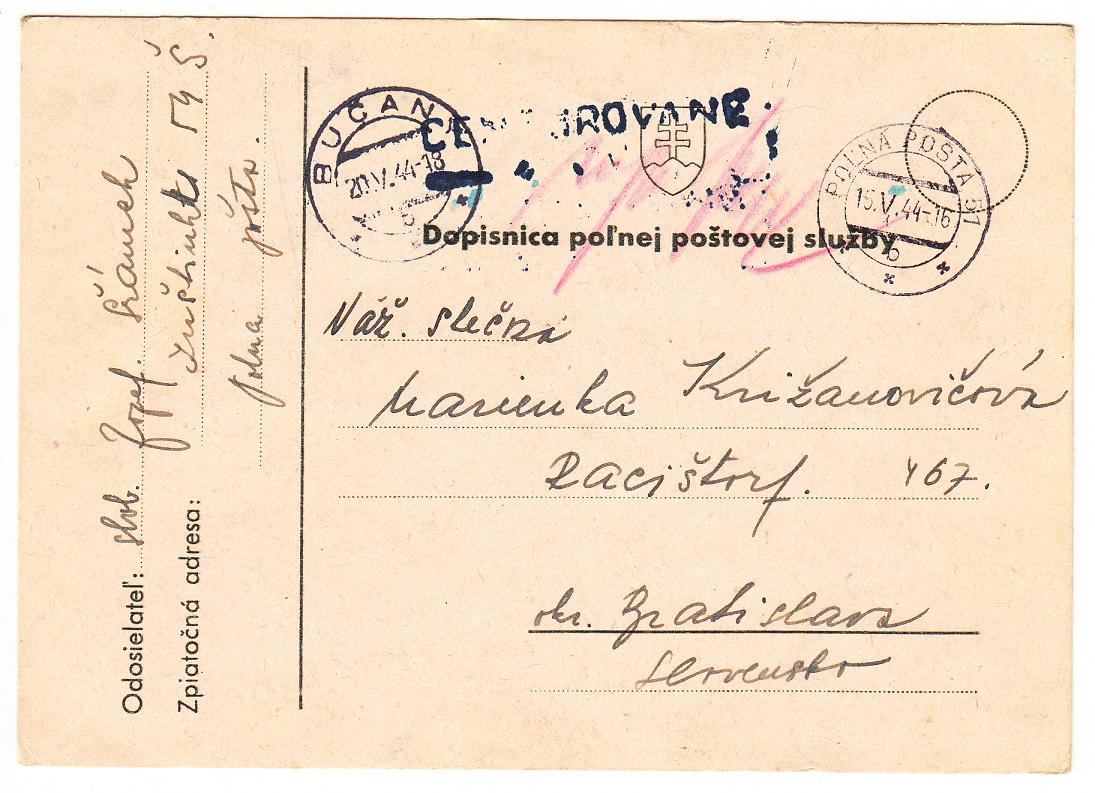 Odosielateľ: slob. Jozef Šrámek
Zpiatočná adresa:
54 Š.
poľná pošta.
BUČANY
20.V.44-18
b
CENZUROVANÉ.
POĽNÁ POŠTA 51
15.V.44-16
b
Dopisnica poľnej poštovej služby
Váž. slečna
Marienka Križanovičová
Racištorf. 467.
okr. Bratislava
Slovensko